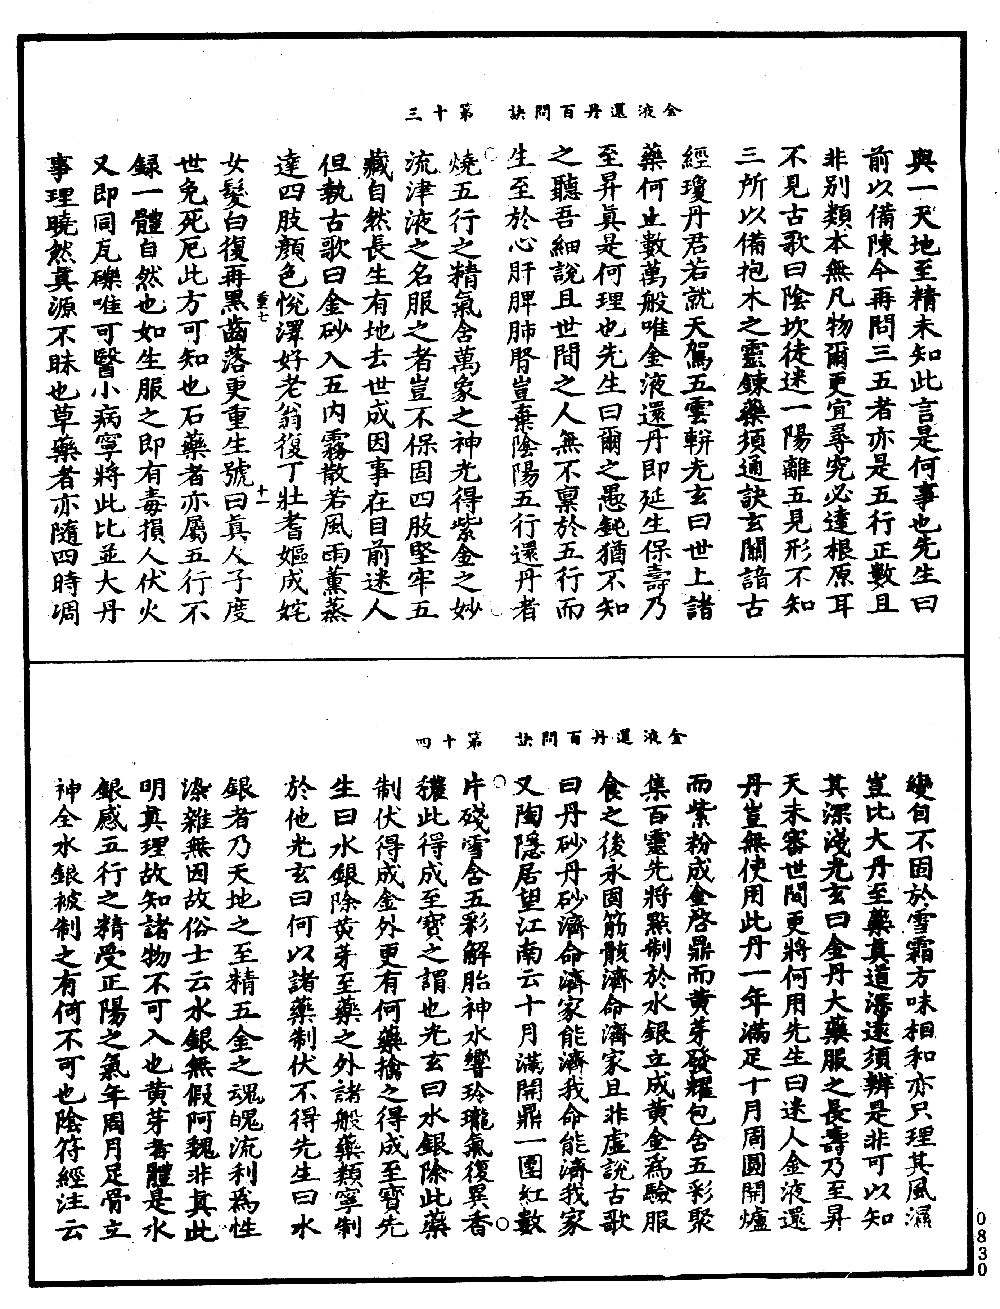 金液還丹百問訣　第十三
與一天地至精未知此言是何事也先生曰
前以備陳今再問三五者亦是五行正數且
非別類本無凡物爾更宜尋究必達根原耳
不見古歌曰陰坎徒迷一陽離五見形不知
三所以備抱木之靈鍊藥須通訣玄關諳古
經瓊丹君若就天駕五雲輧光玄曰世上諸
藥何止數萬般唯金液還丹即延生保壽乃
至昇真是何理也先生曰爾之愚鈍猶不知
之聽吾細說且世間之人無不稟於五行而
生至於心肝脾肺腎豈棄陰陽五行還丹者
燒五行之精氣含萬象之神光得紫金之妙
流津液之名服之者豈不保固四肢堅牢五
藏自然長生有地去世成因事在目前迷人
但執古歌曰金砂入五內霧散若風雨薰蒸
達四肢顏色悅澤好老翁復丁壯耆嫗成姹
重七　十一
女髮白復再黑齒落更重生號曰真人子度
世免死厄此方可知也石藥者亦屬五行不
録一體自然也如生服之即有毒損人伏火
又即同瓦礫唯可醫小病寧將此比並大丹
事理曉然真源不昧也草藥者亦隨四時凋
金液還丹百問訣　第十四
變自不固於雪霜方味相和亦只理其風濕
豈比大丹至藥真道深遠須辨是非可以知
其深淺光玄曰金丹大藥服之長壽乃至昇
天未審世間更將何用先生曰迷人金液還
丹豈無使用此丹一年滿足十月周圓開爐
而紫粉成金啓鼎而黄芽發耀包含五彩聚
集百靈先將點制於水銀立成黄金為驗服
食之後永固筋骸濟命濟家且非虛說古歌
曰丹砂丹砂濟命濟家能濟我命能濟我家
又陶隱居望江南云十月滿開鼎一團紅數
片殘雪含五彩解胎神水響玲瓏氣復異香
穠此得成至寶之謂也光玄曰水銀除此藥
制伏得成金外更有何藥擒之得成至寶先
生曰水銀除黄芽至藥之外諸般藥類寧制
於他光玄曰何以諸藥制伏不得先生曰水
銀者乃天地之至精五金之魂魄流利為性
滲雜無因故俗士云水銀無假阿魏非真此
明真理故知諸物不可入也黄芽者體是水
銀感五行之精受正陽之氣年周月足骨立
神全水銀被制之有何不可也陰符經注云
0830